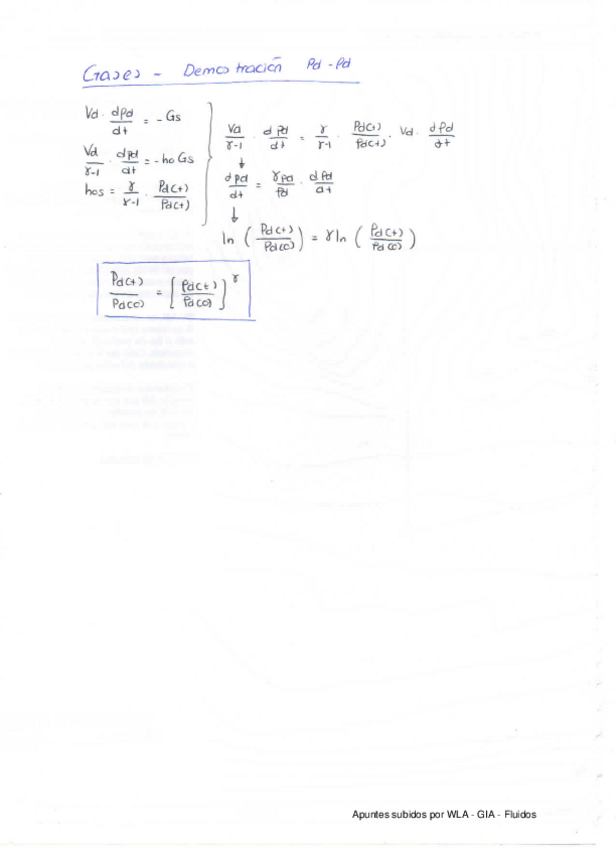 Gases - Demostración Pd - ρd
Vd · dρd/dt = - Gs
Vd/γ-1 · dPd/dt = - ho Gs
hos = γ/γ-1 · Pd(t)/ρd(t)
Vd/γ-1 · dPd/dt = γ/γ-1 · Pd(t)/ρd(t) · Vd · dρd/dt
↓
dPd/dt = γPd/ρd · dρd/dt
↓
ln (Pd(t)/Pd(0)) = γ ln (ρd(t)/ρd(0))
Pd(t)/Pd(0) = [ρd(t)/ρd(0)]^γ
Apuntes subidos por WLA - GIA - Fluidos